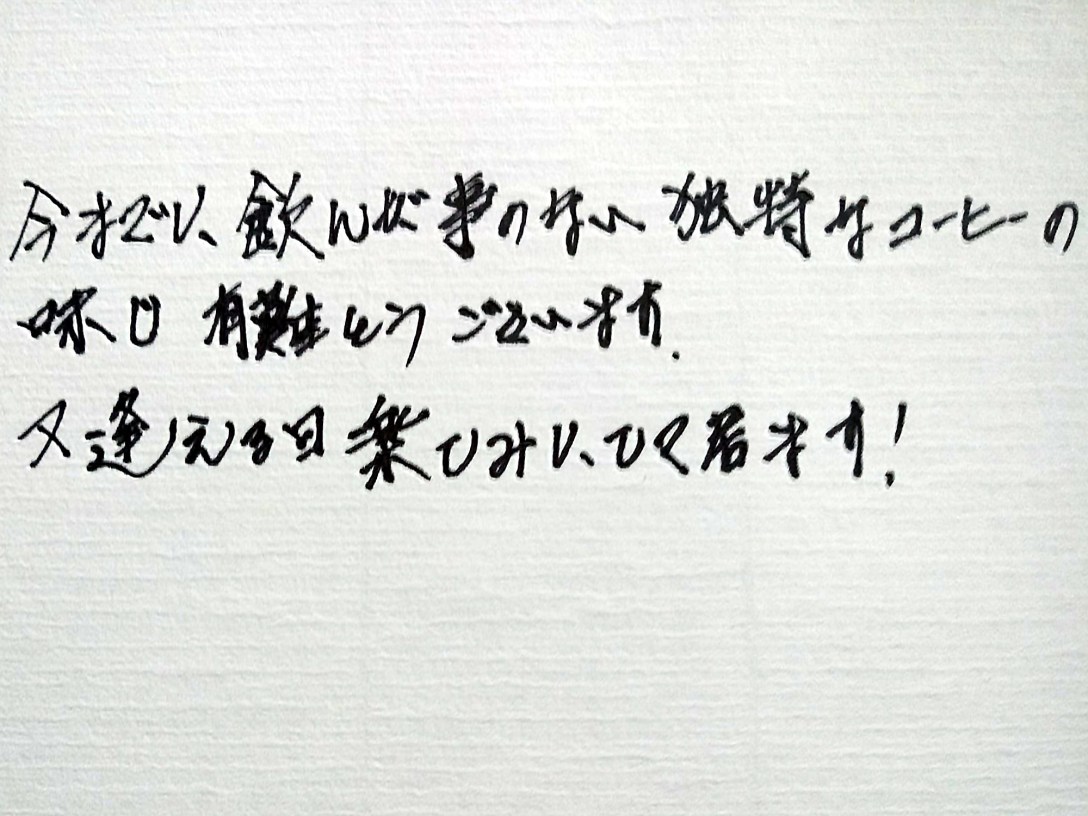 今までに、飲んだ事のない独特なコーヒーの
味じ有難とうございます.
又逢える日楽しみにして居ます!